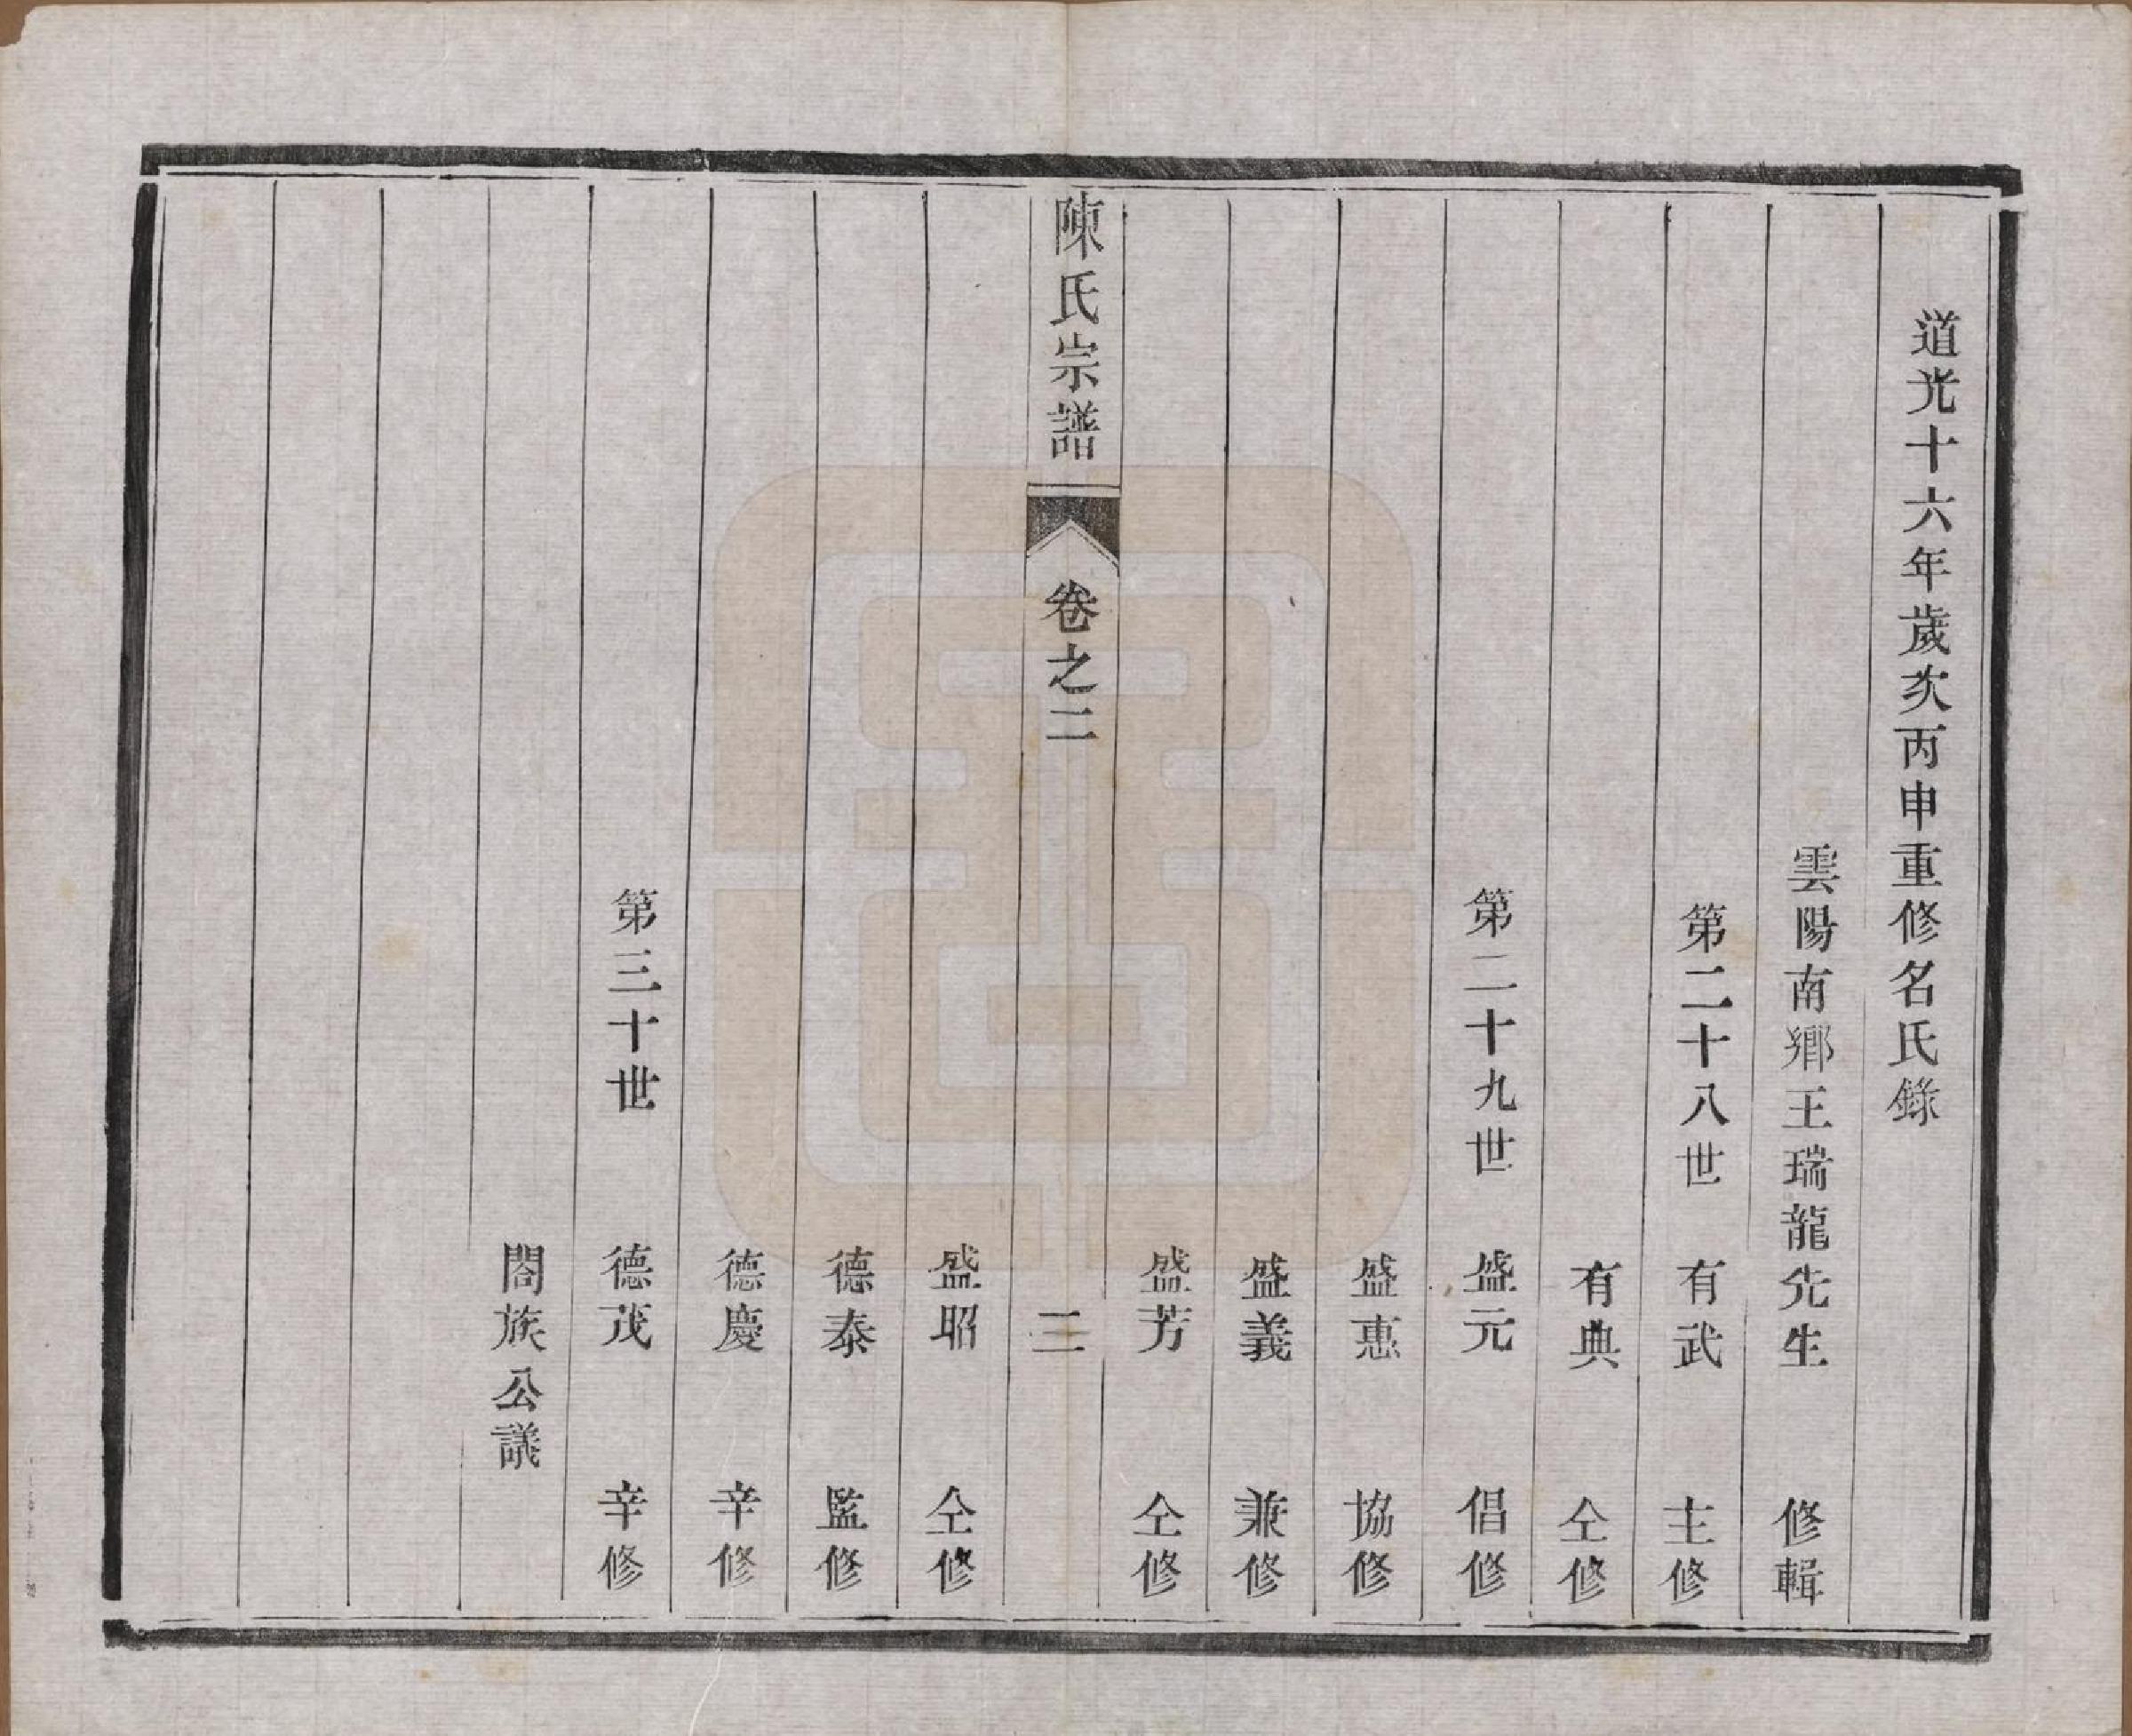 道光十六年歲次丙申重修名氏錄
雲陽南鄉王瑞龍先生 修輯
第二十八世 有武 主修
有典 仝修
第二十九世 盛元 倡修
盛惠 協修
盛義 兼修
盛芳 仝修
陳氏宗譜 卷之二 三
盛昭 仝修
德泰 監修
德慶 辛修
第三十世 德茂 辛修
閤族公議